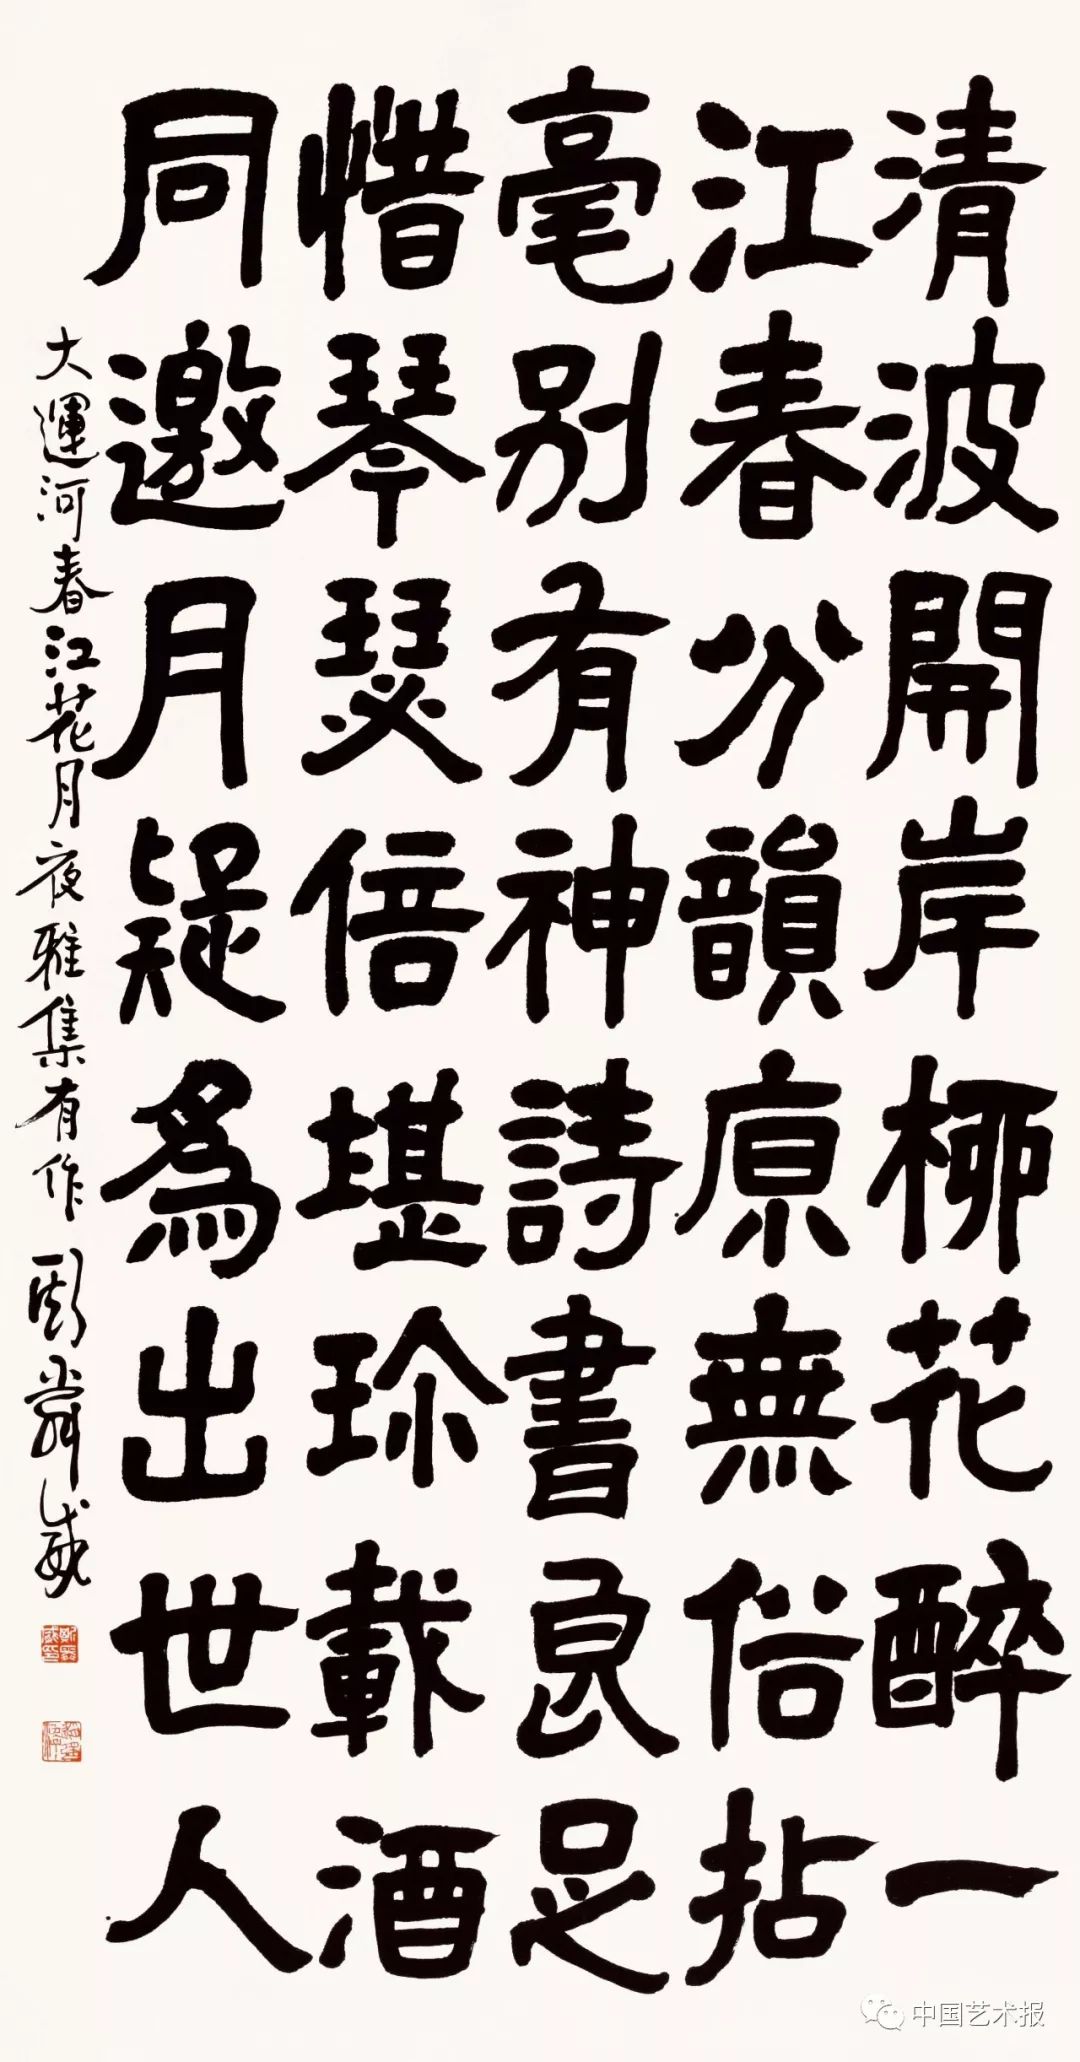 清波開岸柳花醉一
江春分韻原無俗拈
毫別有神詩書良足
惜琴瑟倍堪珍載酒
同邀月疑為出世人
大運河春江花月夜雅集有作
中国艺术报